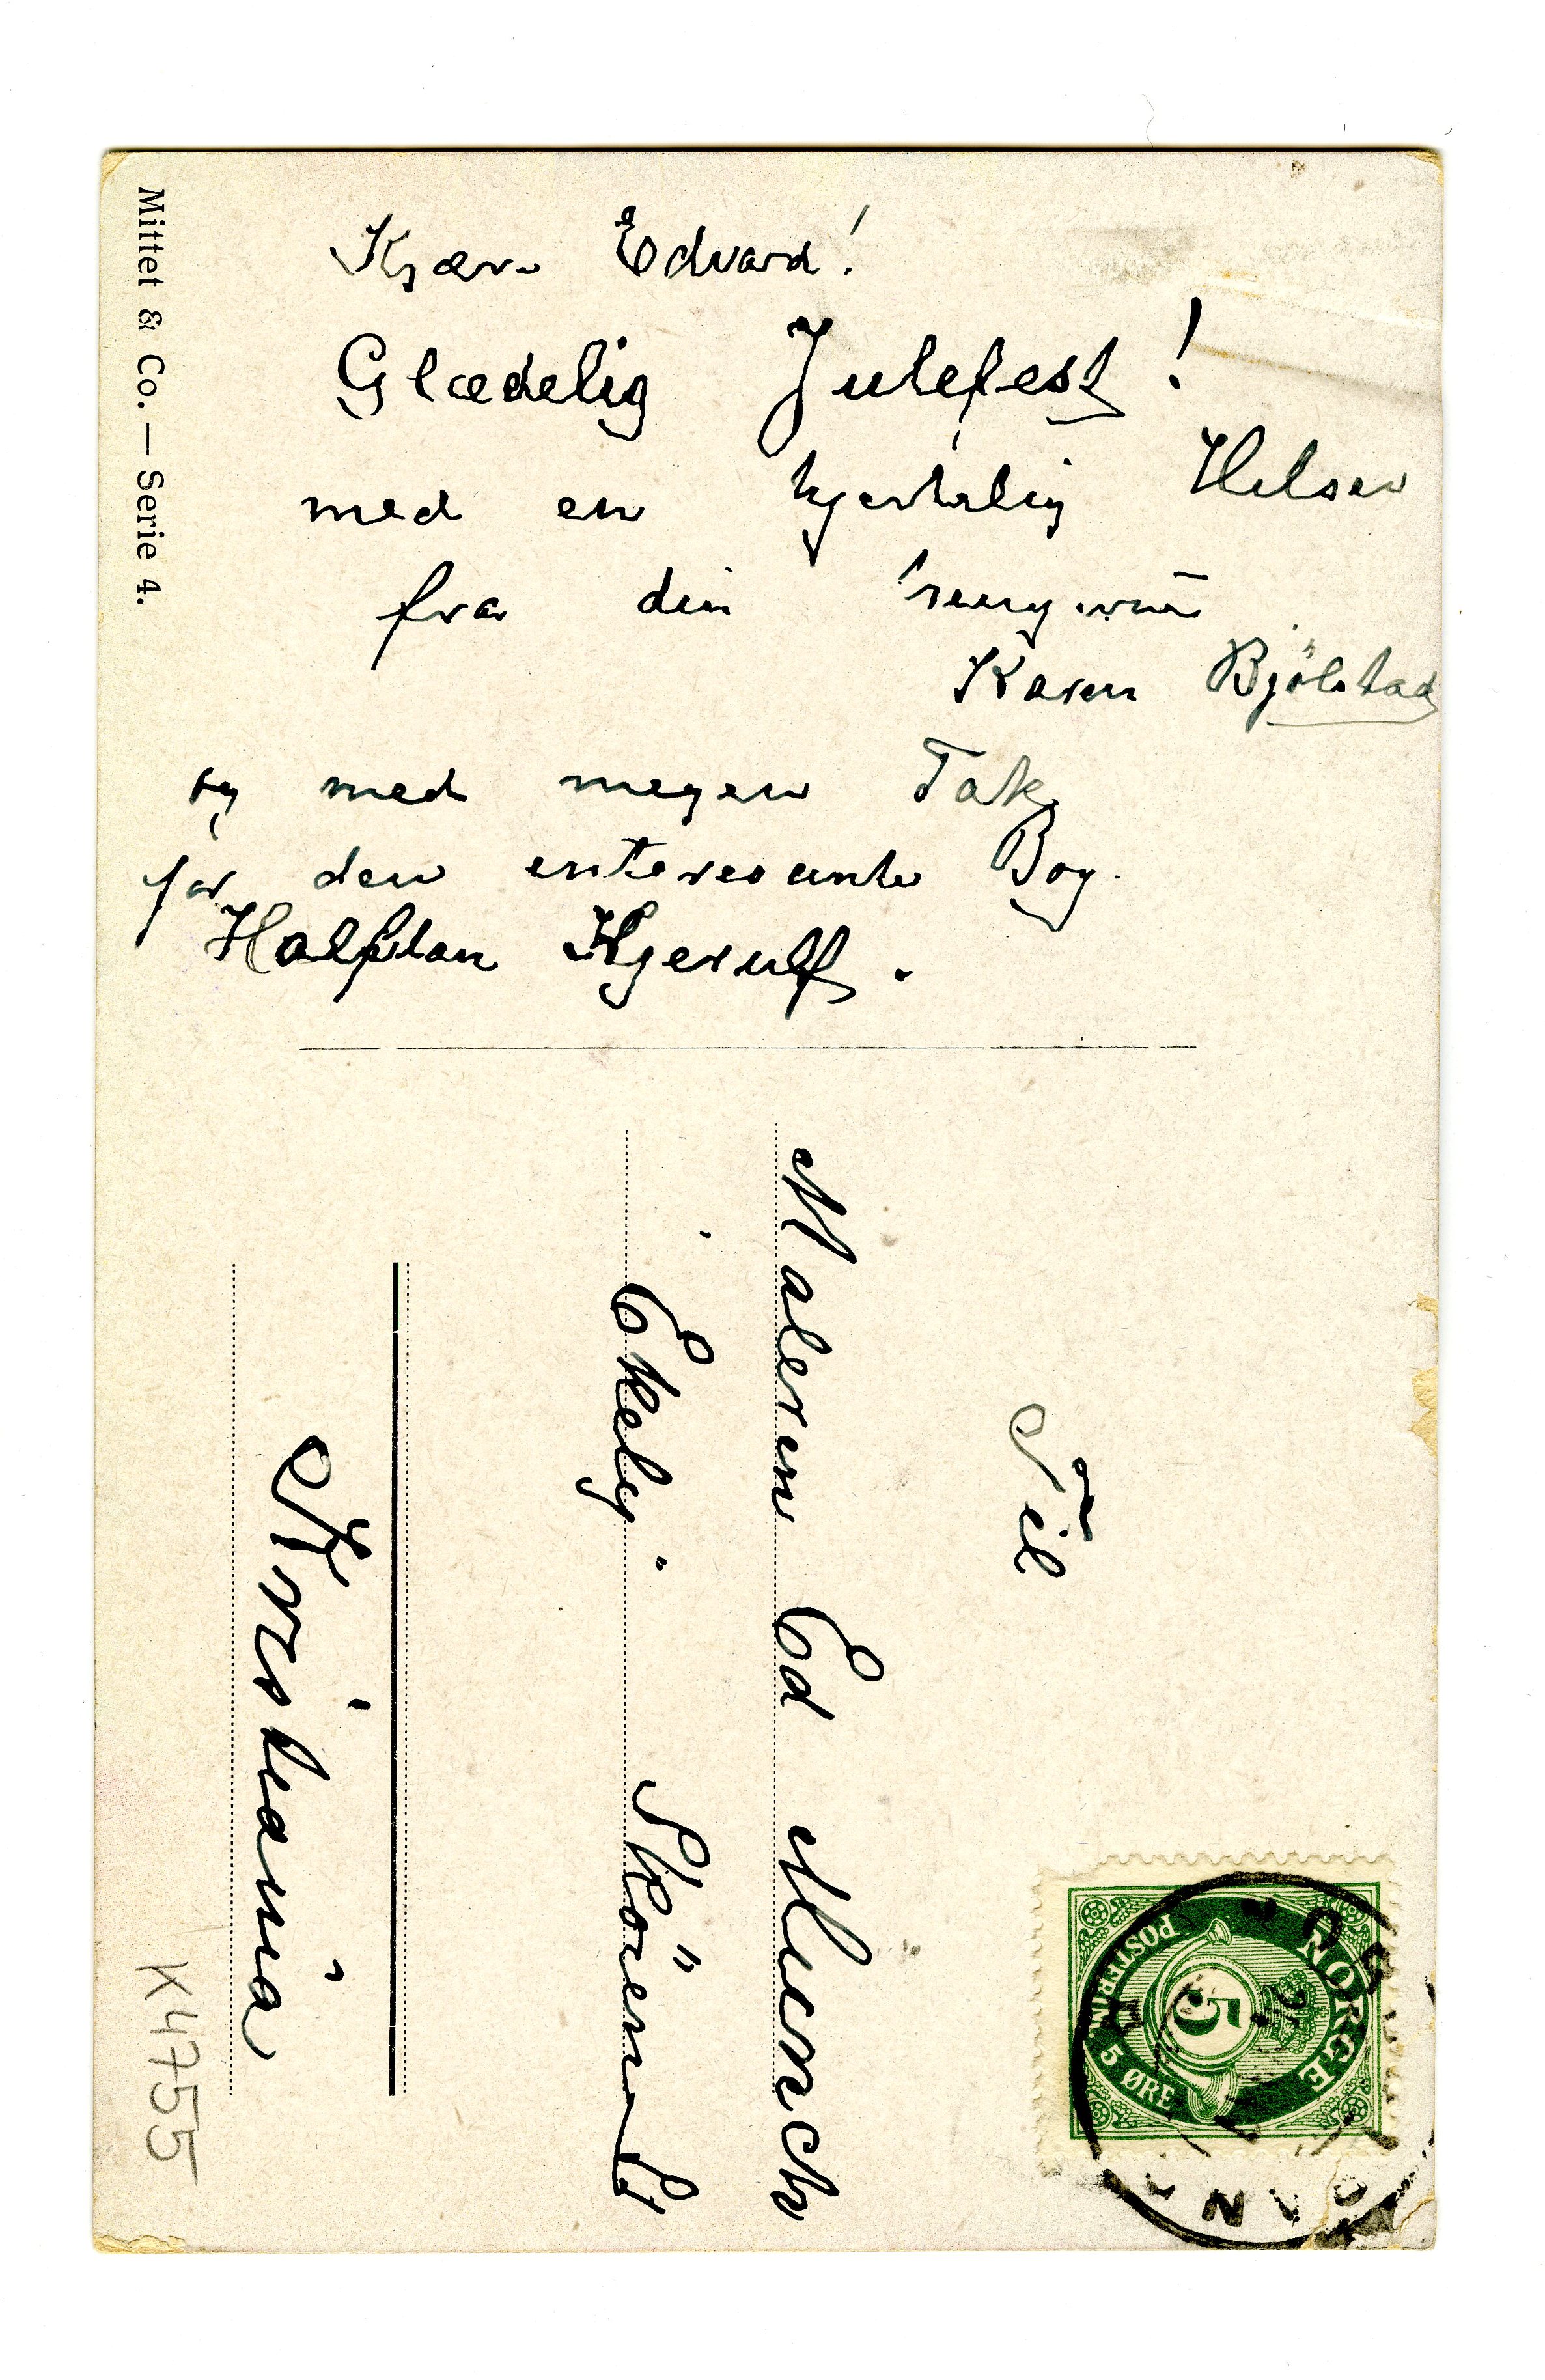 Kjære Edvard!
Glædelig Julefest!
med en hjertelig Hilsen
fra din
Karen Bjölstad
og med megen Tak
for den enteresante Bog.
Halfdan Kjerulf.
Til
Maleren Ed Munch
Ekely. Sköien St
Kristiania
Mittet & Co. — Serie 4.
K4755
NORGE
POSTFRIM.
5
5 ØRE